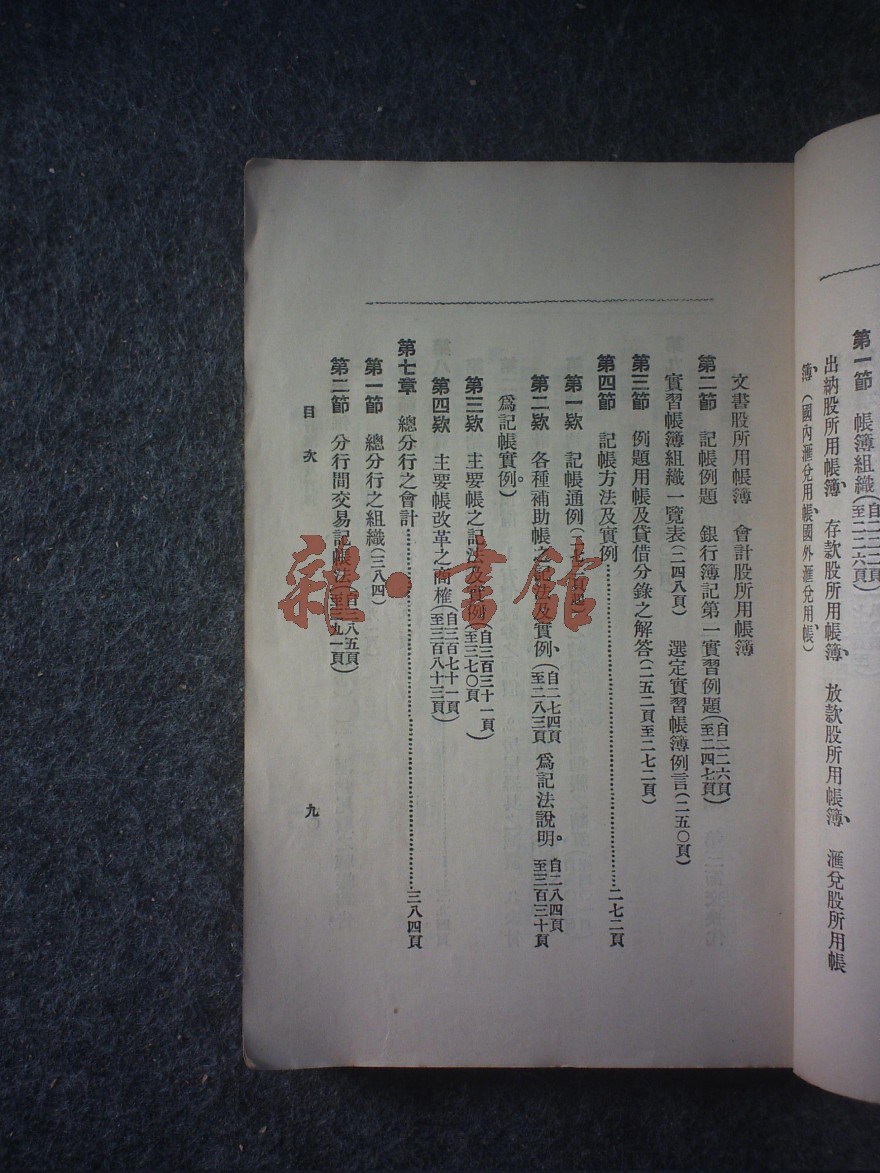 第一節　帳簿組織(自二二二頁至二二六頁)
出納股所用帳簿、存款股所用帳簿、放款股所用帳簿、滙兌股所用帳
簿、(國內滙兌用帳、國外滙兌用帳)
文書股所用帳簿　會計股所用帳簿
第二節　記帳例題　銀行簿記第一實習例題(自二二六頁至二四七頁)
實習帳簿組織一覽表(二四八頁)　選定實習帳簿例言(二五〇頁)
第三節　例題用帳及貸借分錄之解答(二五二頁至二七二頁)
第四節　記帳方法及實例……二七二頁
第一欵　記帳通例(二七二頁起)
第二欵　各種補助帳之記法及實例、(自二七四頁至二八三頁　爲記法說明。自二八四頁至三百三十頁
爲記帳實例。)
第三欵　主要帳之記法及實例(自三百三十一頁至三七〇頁)
第四欵　主要帳改革之商榷(自三百七十一頁至三百八十三頁)
第七章　總分行之會計……三八四頁
第一節　總分行之組織(三八四)
第二節　分行間交易記帳法(自三八五頁至三九一頁)
目次
九
雜·書館